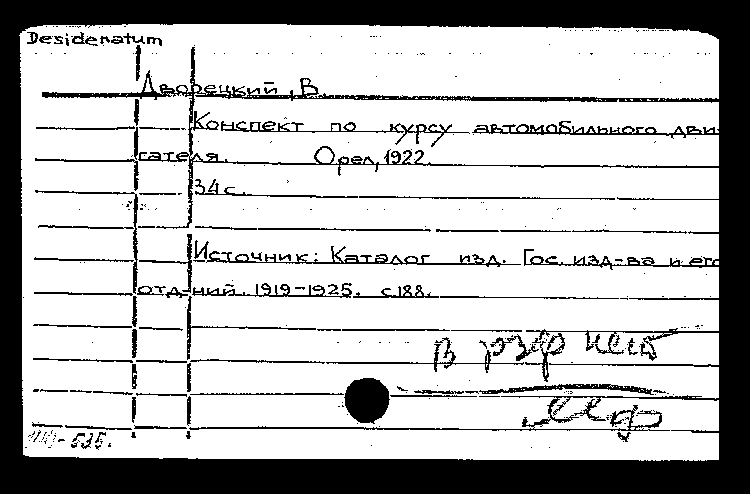 Desideratum
Дворецкий, В.
Конспект по курсу автомобильного дви-
гателя. Орел, 1922.
34 с.
Источник: Каталог изд. Гос. изд-ва и его
отд-ний. 1919-1925. с 188.
В рзф нет